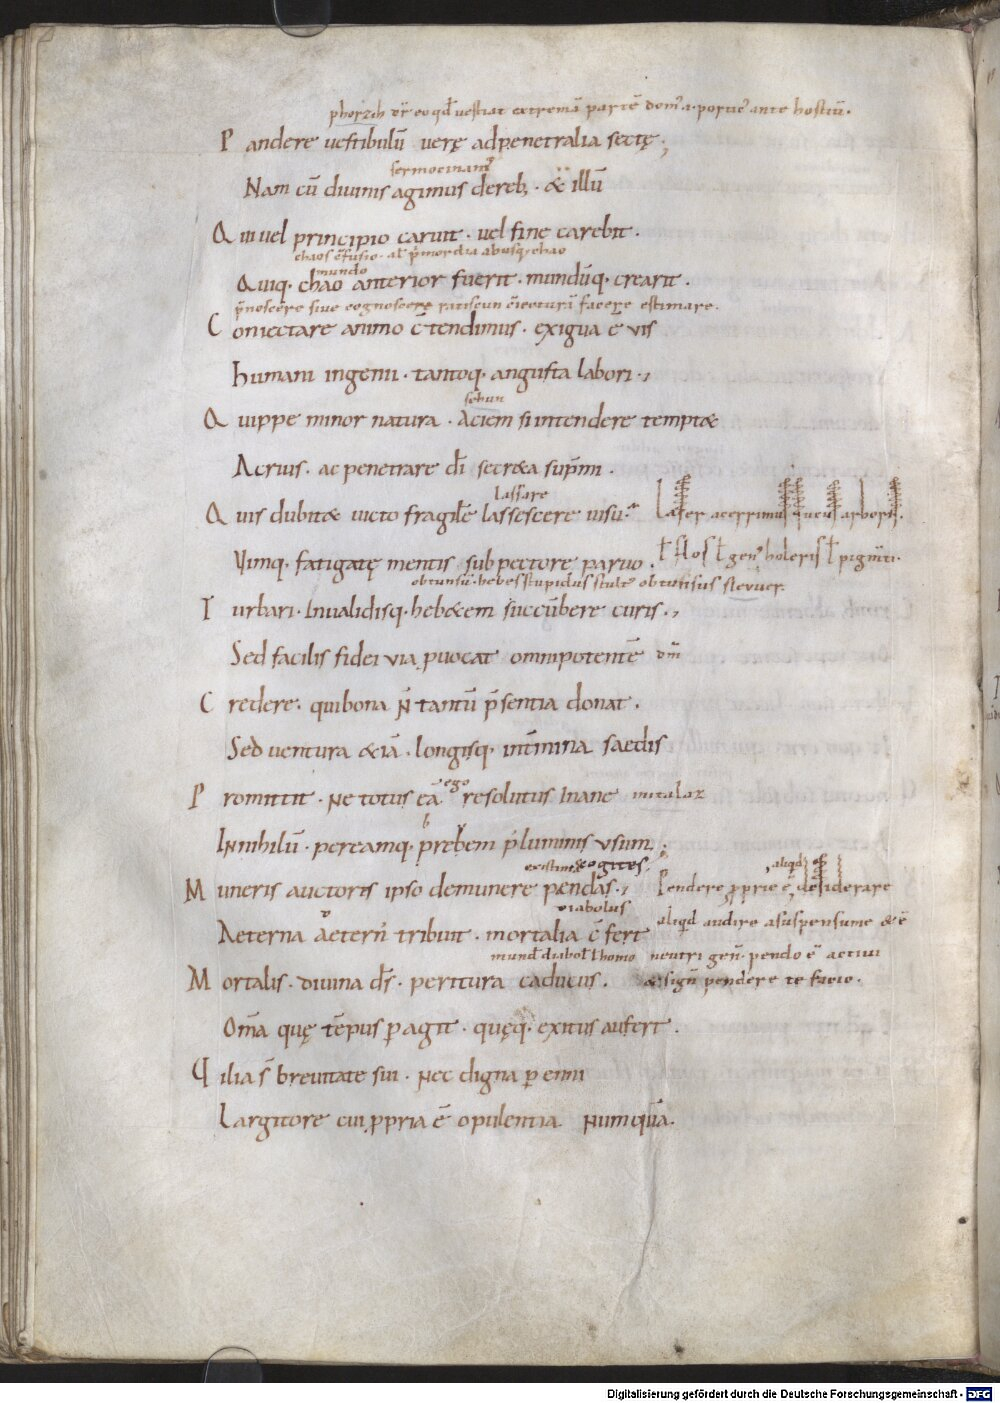 phorzih dr̄ eo qd̄ uestiat extremā partē dom᷒ a portic᷒ ante hostiū.
Pandere uestibulū verę ad penetralia sectę;
sermocinam᷒
Nam cū diuinis agimus dereb; · & illū
Qui uel principio caruit · uel fine carebit ·
chaos c̄fusio · al̄ p̄mordia
mundo
Quiq· chao anterior fuerit · mundūq· crearit ·
p̄noscere siue cognoscere c̄iecturā facere estimare.
Coniectare animo c̄tendimus · exigua ē vis
humani ingenii · tantoq· angusta labori.,
sehun
Quippe minor natura · Aciem si intendere temptæ
Acrius · ac penetrare dī secreta sup̄mi ·
lassare
Quis dubitæ uicto fragilē lassescere uisū
Laser acerrimus sucus arboris.
Vimq· fatigatę mentis sub pectore paruo .
ł flos ł gen᷒ holeris ł pigm̄ti·
obtunsū · hebes stupidus stult᷒ obtunsus
Turbari · Inualidisq· hebetem succūbere curis.,
Sed facilis fidei via ꝓuocat omnipotentē dm̄
Credere· qui bona ñ tantū p̄sentia donat ·
Sed uentura &iā · longisq· int̄mina saeclis
ego
Promittit · Ne totus eā resolutus Inane
b
In nihilū · pereamq· p̄rebem p̄ luminis vsum ;
existimes cogites.
aliqd ē
Muneris auctoris ipso de munere pendas.,
Pendere ꝓprie ē desiderare
diabolus
aliqd audire a suspensume & ē
Aeterna aetern᷒ tribuit · mortalia c̄fert
mund᷒ diabol᷒ ł homo
neutri gen̄· pendo ē actiui
Mortalis · diuina ds̄ · peritura caducus .
& sign̄ pendere te facio.
Om̄a quę tēpus ꝑagit · quęq· exitus aufert .
Vilia s̄ breuitate sui · nec digna ꝑenni
Largitore cui ꝓpria ē opulentia numquā.
Digitalisierung gefördert durch die Deutsche Forschungsgemeinschaft - DFG